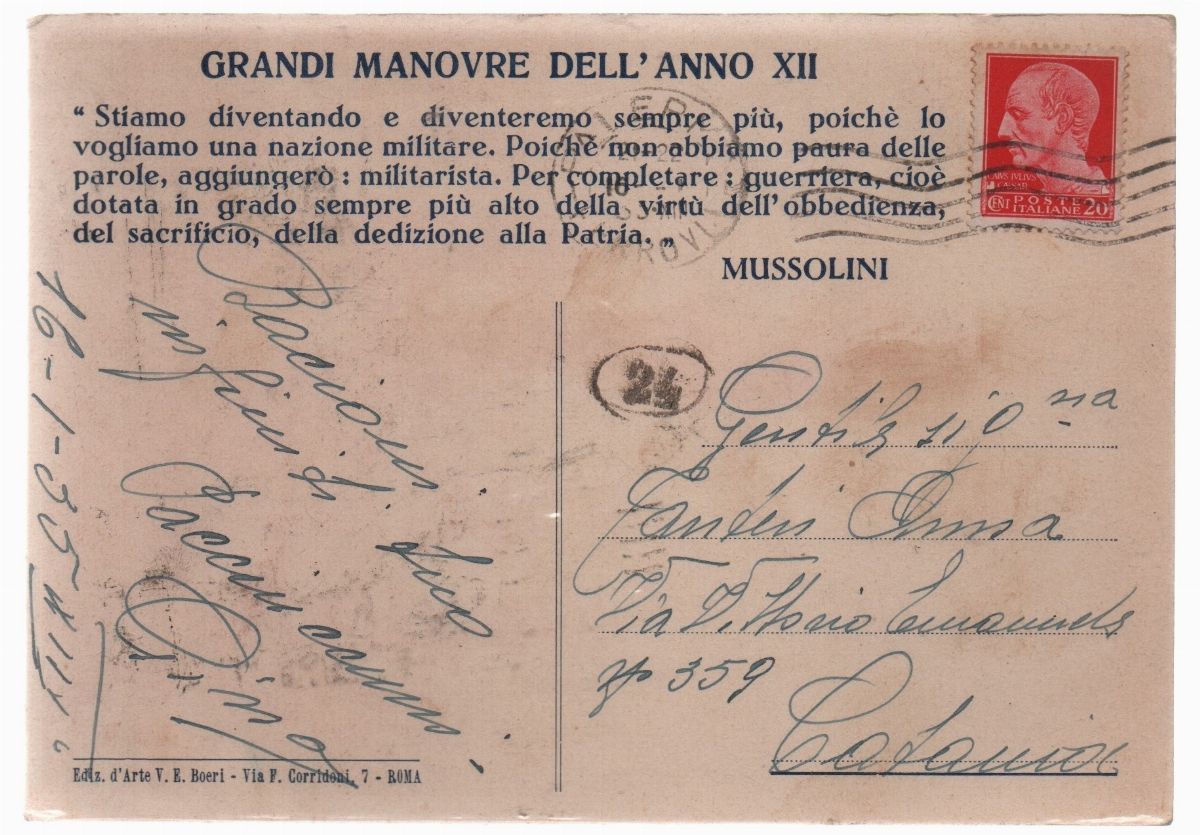 GRANDI MANOVRE DELL'ANNO XII
“ Stiamo diventando e diventeremo sempre più, poichè lo
vogliamo una nazione militare. Poichè non abbiamo paura delle
parole, aggiungerò : militarista. Per completare : guerriera, cioè
dotata in grado sempre più alto della virtù dell'obbedienza,
del sacrificio, della dedizione alla Patria. „
MUSSOLINI
CAIVS IVLIVS
CAESAR
CENT POSTE
ITALIANE 20
PALERMO
24
Bacioni
infiniti
tuo
Gentile Signa
Anna
Via V. ttorio Emanuele
No 359
Catania
16-1-35 XIII
Ediz. d'Arte V. E. Boeri - Via F. Corridoni, 7 - ROMA